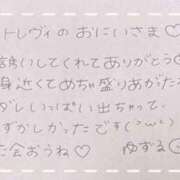 トレヴィのおにいさま♡
誘いしてくれてありがとう
身近くてめちゃ盛りあがた
ダレいっぱい出ちゃって、
ずかしかったです(´ω`)
た会おうね♡ ゆずる